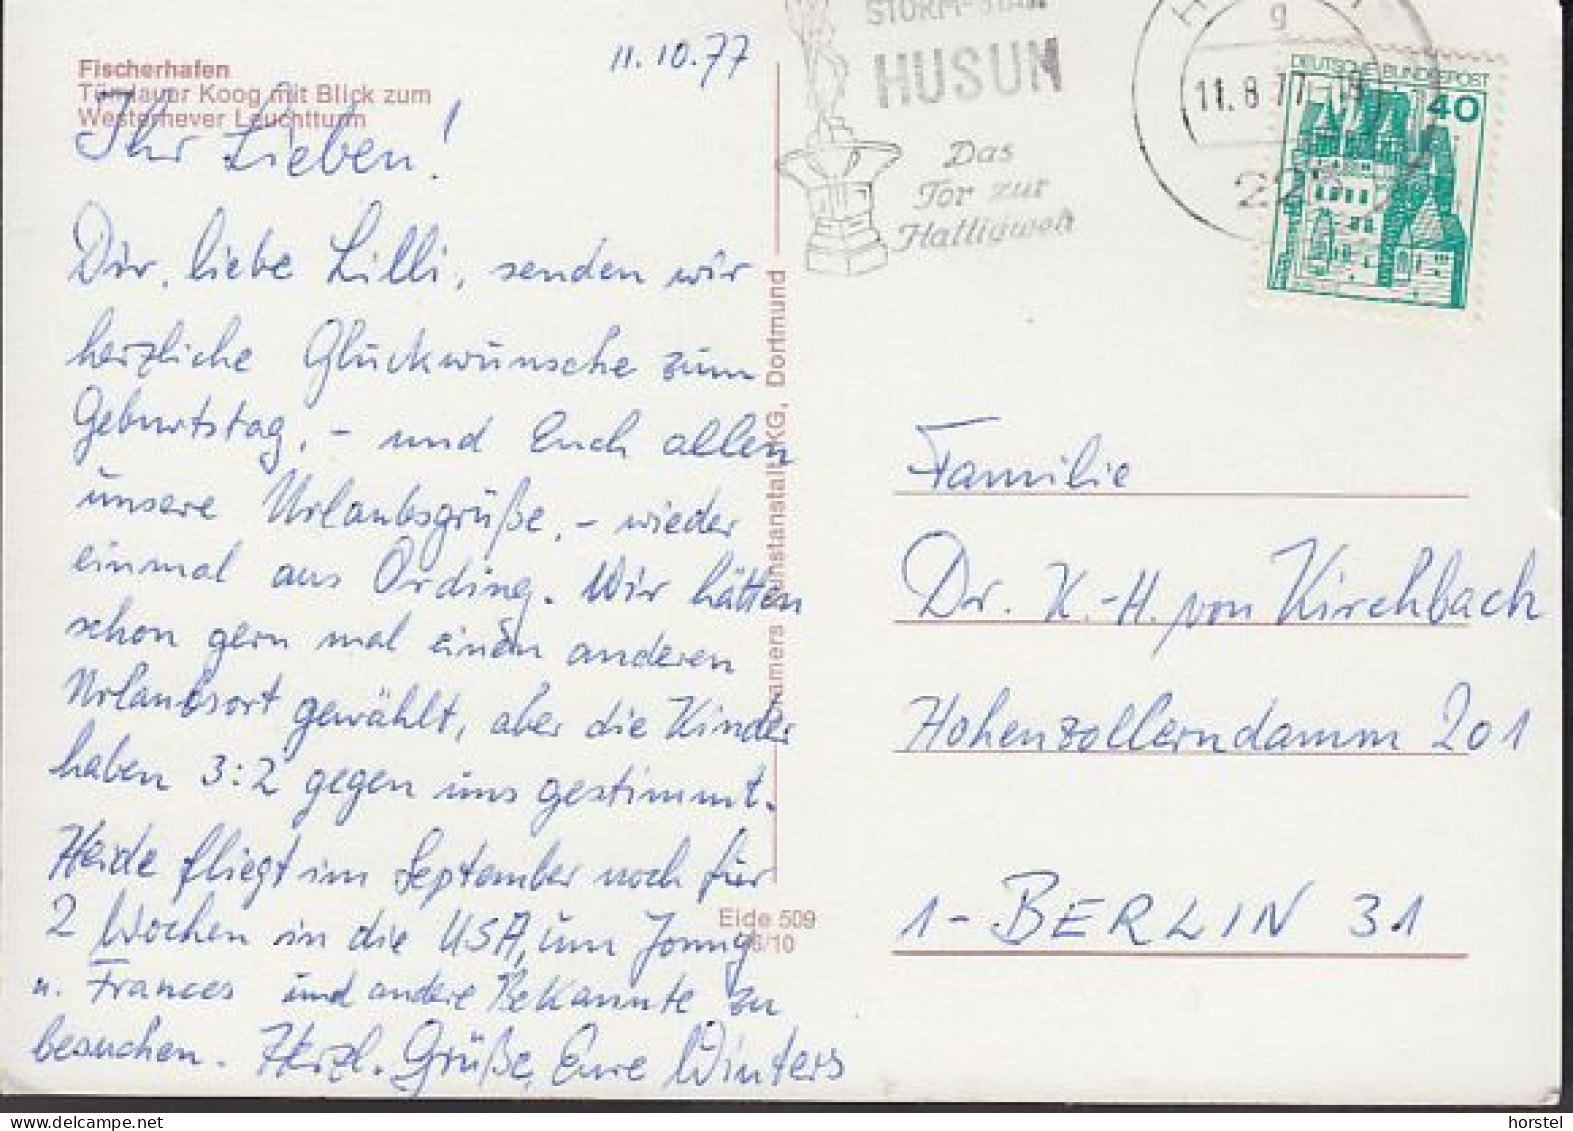 Fischerhafen
Tümlauer Koog mit Blick zum
Westerhever Leuchtturm
11.10.77
Ihr Lieben!
Dir, liebe Lilli, senden wir
herzliche Glückwünsche zum
Geburtstag, - und Euch allen
unsere Urlaubsgrüße, - wieder
einmal aus Ording. Wir hätten
schon gern mal einen anderen
Urlaubsort gewählt, aber die Kinder
haben 3:2 gegen uns gestimmt.
Heide fliegt im September noch für
2 Wochen in die USA, um Jonny
u. Frances und andere Bekannte zu
besuchen. Herzl. Grüße, Eure Winters
Kunstanstalt KG, Dortmund
Eide 509
/10
HUSUM
Das
Tor zur
Halligwelt
g
11.8.77
DEUTSCHE BUNDESPOST
40
Familie
Dr. K.-H. von Kirchbach
Hohenzollerndamm 201
1-BERLIN 31
horstel